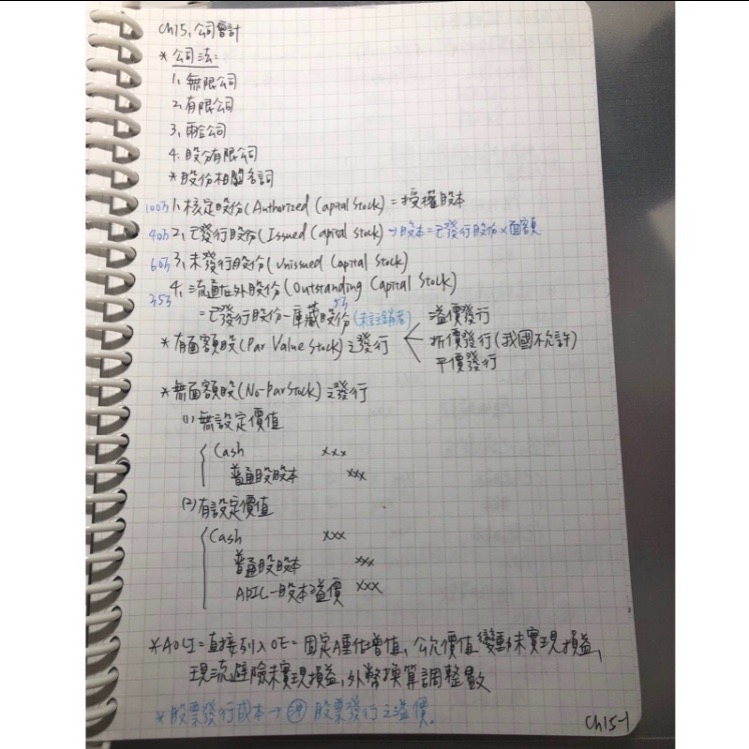 Ch15. 公司會計
* 公司法:
1. 無限公司
2. 有限公司
3. 兩合公司
4. 股份有限公司
* 股份相關名詞
100万 1. 核定股份 (Authorized Capital Stock) = 授權股本
40万 2. 已發行股份 (Issued Capital Stock) → 股本 = 已發行股份 × 面額
60万 3. 未發行股份 (Unissued Capital Stock)
35万 4. 流通在外股份 (Outstanding Capital Stock)
= 已發行股份 - 庫藏股份 5万 (未註銷者)
* 有面額股 (Par Value Stock) 之發行
溢價發行
折價發行 (我國不允許)
平價發行
* 無面額股 (No-Par Stock) 之發行
(1) 無設定價值
Cash xxx
普通股股本 xxx
(2) 有設定價值
Cash xxx
普通股股本 xxx
APIC-股本溢價 xxx
* AOCI = 直接列入 OE = 固定A重估增值, 公允價值變動未實現損益,
現流避險未實現損益, 外幣換算調整數
* 股票發行成本 → 股票發行之溢價.
Ch15-1